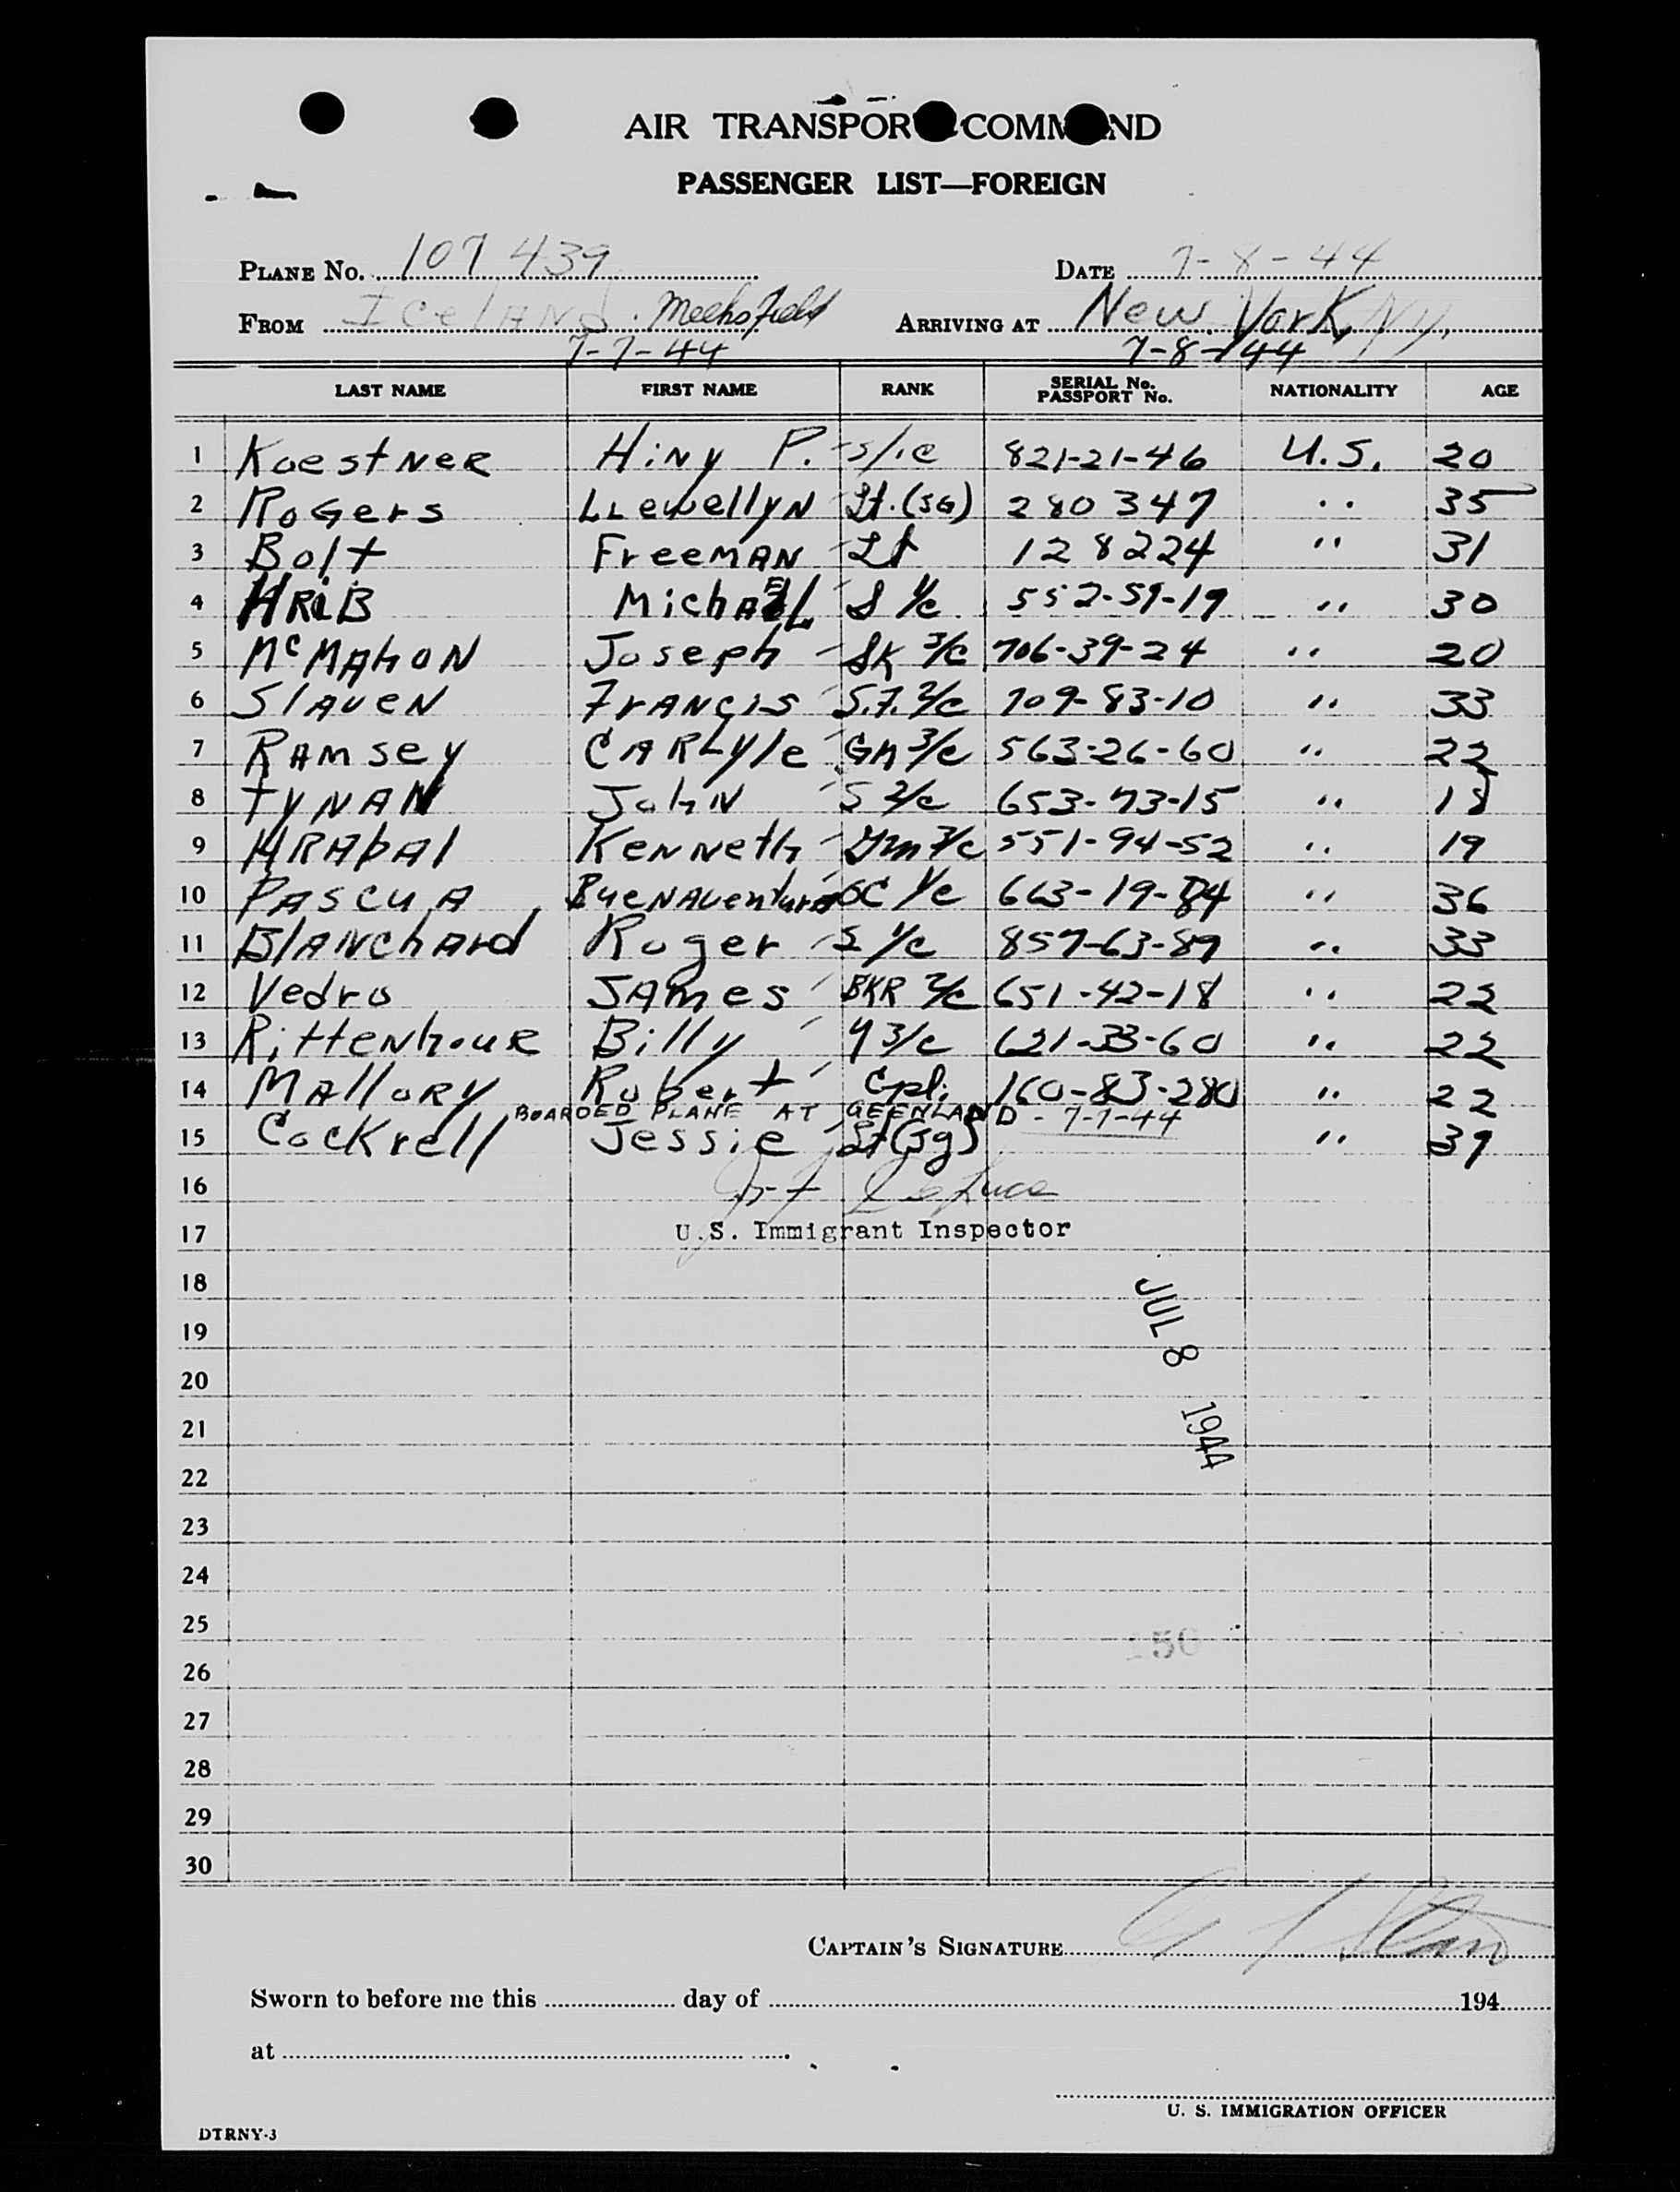 AIR TRANSPORT COMMAND
PASSENGER LIST—FOREIGN
PLANE No. 107439 DATE 7-8-44
FROM Iceland. Meeks Field ARRIVING AT New York, N.Y.
7-7-44 7-8-44
LAST NAME FIRST NAME RANK SERIAL No. PASSPORT No. NATIONALITY AGE
1 Koestner Hiny P. S/1c 821-21-46 U.S. 20
2 Rogers Llewellyn Lt.(JG) 280347 " 35
3 Bolt Freeman Lt 128224 " 31
4 Hrib Michael S 1/c 552-59-19 " 30
5 McMahon Joseph SK 3/c 706-39-24 " 20
6 Slaven Francis S.F. 2/c 709-83-10 " 33
7 Ramsey Carlyle GM 3/c 563-26-60 " 22
8 Tynan John S 2/c 653-73-15 " 18
9 Hrabal Kenneth 551-94-52 " 19
10 Pascua Buenaventura 1/c 663-19-84 " 36
11 Blanchard Roger S 1/c 857-63-89 " 33
12 Vedro James BKR 2/c 651-42-18 " 22
13 Rittenhour Billy Y 3/c 621-33-60 " 22
14 Mallory Robert Cpl. 160-83-280 " 22
BOARDED PLANE AT GEENLAND - 7-7-44
15 Cockrell Jessie Lt(jg) " 39
16
17 U.S. Immigrant Inspector
18
JUL 8 1944
19
20
21
22
23
24
25
26
27
28
29
30
CAPTAIN'S SIGNATURE
Sworn to before me this day of 194
at
U. S. IMMIGRATION OFFICER
DTRNY-3